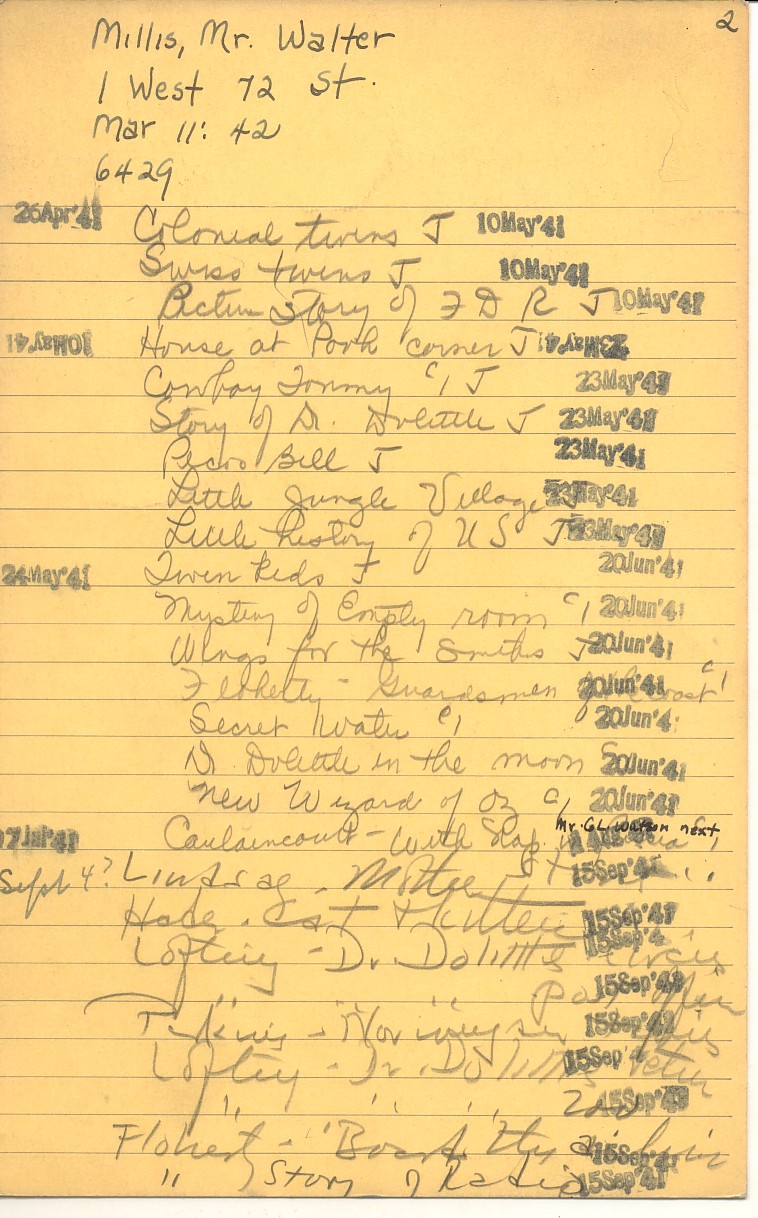 2
Millis, Mr. Walter
1 West 72 St.
Mar 11: 42
6429
26Apr'41 Colonial twins J 10May'41
Swiss twins J 10May'41
Picture Story of F D R J 10May'41
10May'41 House at Pooh corner J 23May'41
Cowboy Tommy c1 J 23May'41
Story of Dr. Dolittle J 23May'41
Pecos Bill J 23May'41
Little Jungle Village J 23May'41
Little history of US J 23May'41
24May'41 Twin kids J 20Jun'41
Mystery of Empty room c1 20Jun'41
Wings for the Smiths J 20Jun'41
Floherty - Guardsmen of coast c1 20Jun'41
Secret Water c1 20Jun'4
Dr Dolittle in the moon 20Jun'41
New Wizard of Oz c1 20Jun'41
Mr. GL Watson next
Caulaincourt - With Nap. in Russia
Sept 4? Lindsay - 15Sep'41
Hader - Cat & the 15Sep'41
Lofting - Dr. Dolittle's Circus 15Sep'4
" " " Post Office 15Sep'41
- Norwegian 15Sep'41
Lofting - Dr. Dolittle's 15Sep'4
" " " Zoo 15Sep'41
Flohert - "Board the airliner 15Sep'41
" Story of Radio 15Sep'41